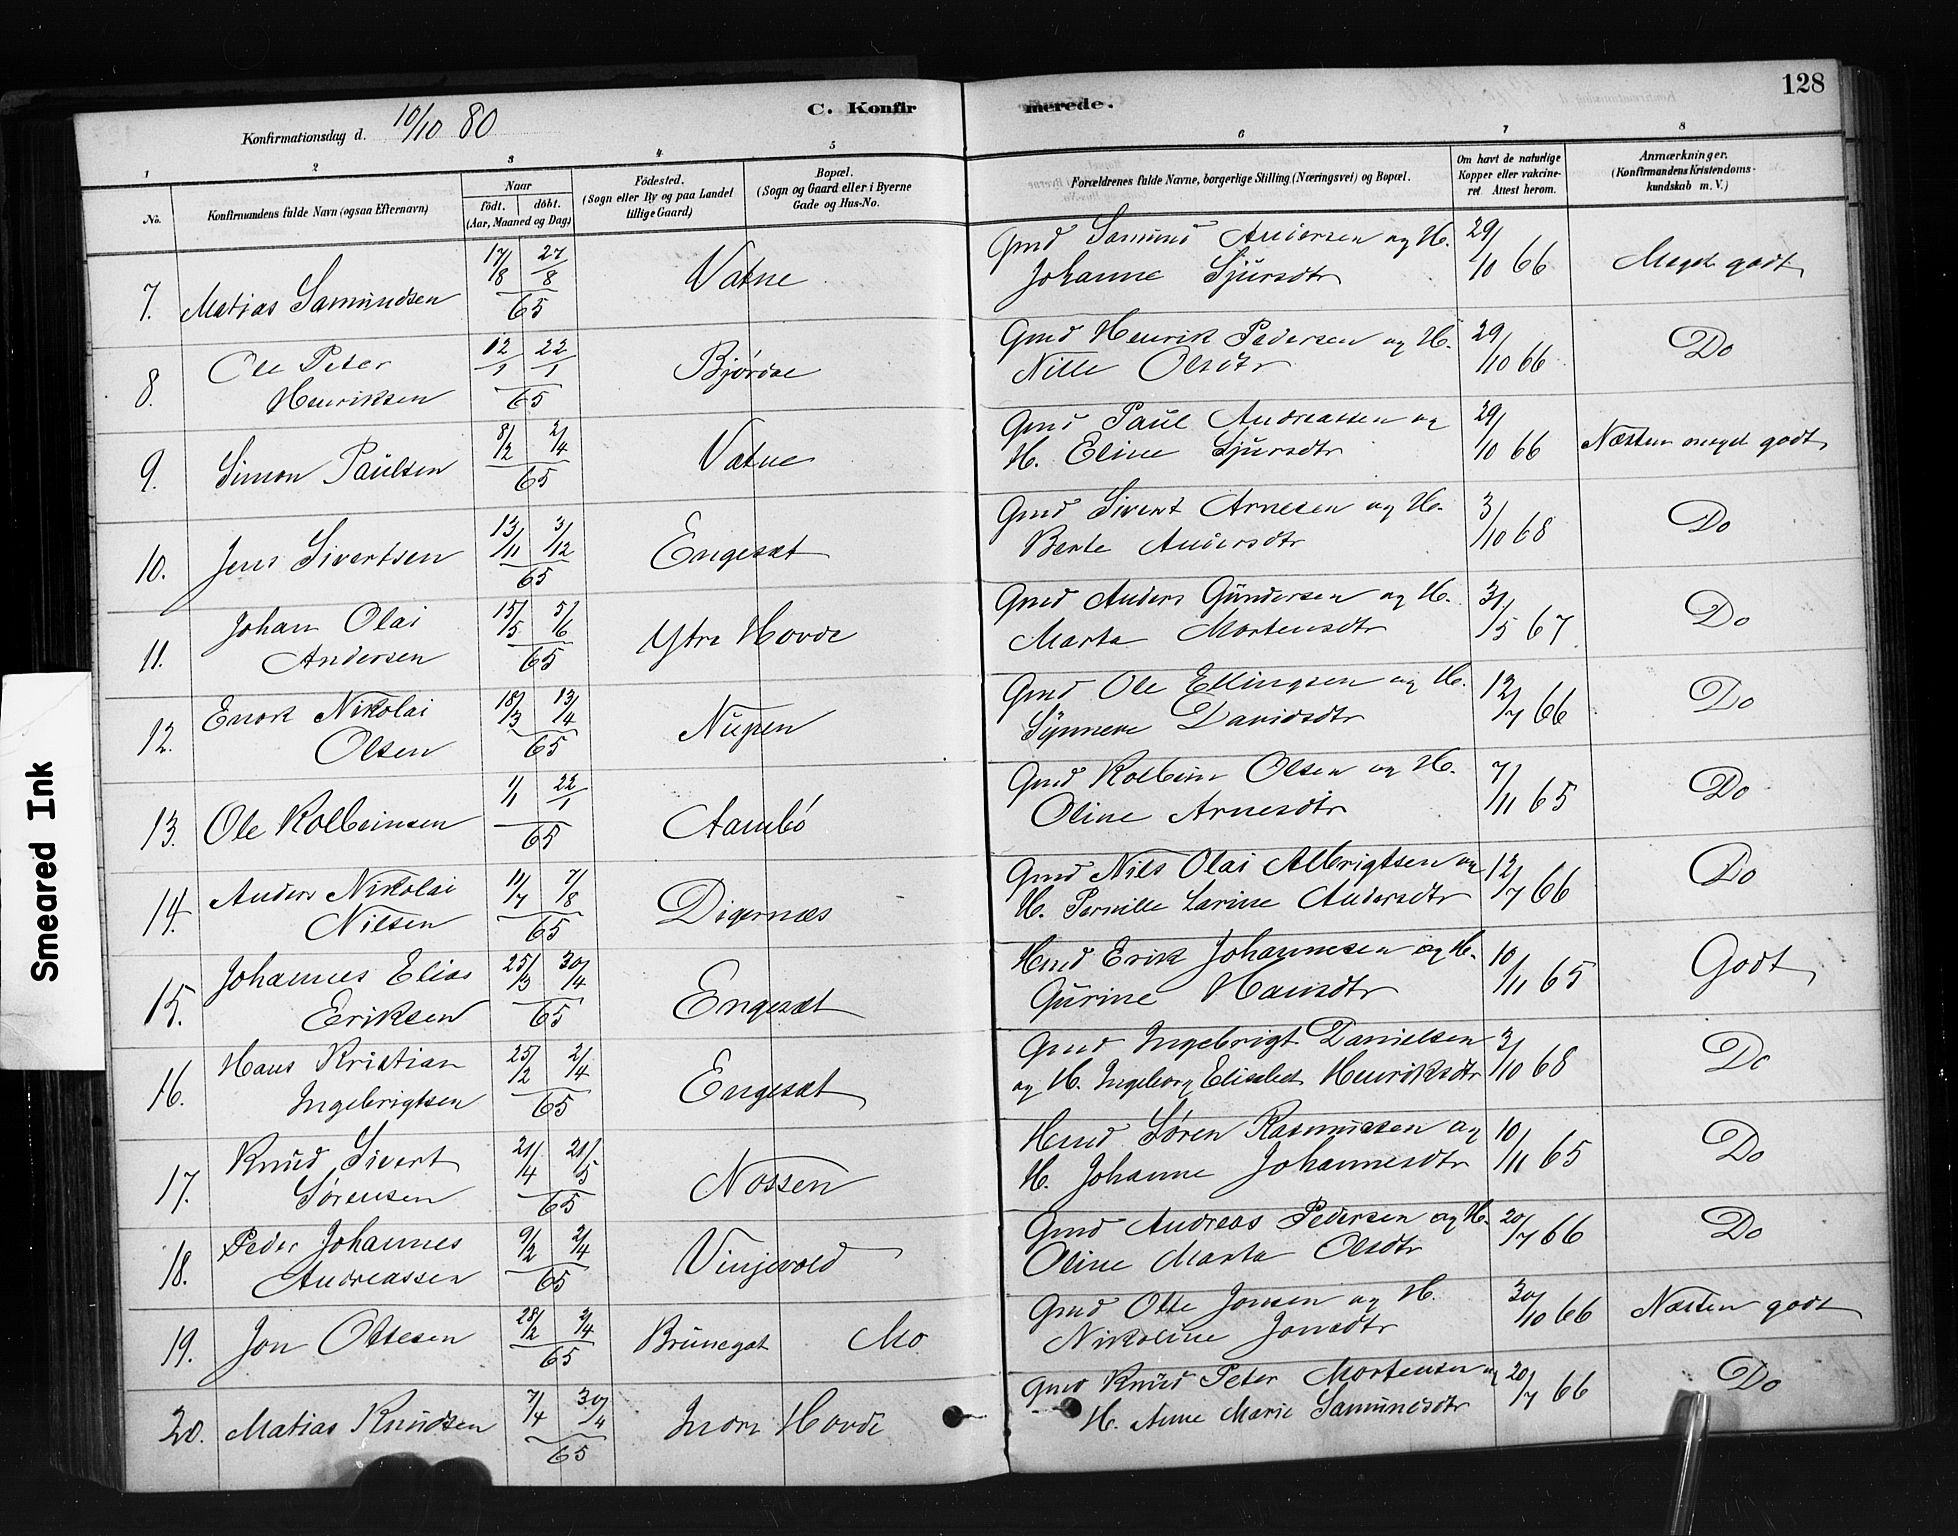 128
Konfirmationsdag d. 10/10 80
C. Konfir merede.
1 2 3 4 5 6 7 8
No.
Konfirmandens fulde Navn (ogsaa Efternavn)
Naar
født. døbt.
(Aar, Maaned og Dag)
Fødested.
(Sogn eller By og paa Landet
tillige Gaard)
Bopæl.
(Sogn og Gaard eller i Byerne
Gade og Hus-No.
Forældrenes fulde Navne, borgerlige Stilling (Næringsvei) og Bopæl.
Om havt de naturlige
Kopper eller vakcine-
ret. Attest herom.
Anmærkninger.
(Konfirmandens Kristendoms-
kundskab m. V.)
7. Matias Samundsen 17/8 27/8 65 Vatne
Gmd Samund Andersen og H.
Johanne Sjursdtr
29/10 66 Meget godt
8. Ole Peter
Henriksen 12/1 22/1 65 Bjørdal
Gmd Henrik Pedersen og H.
Nille Olsdtr
29/10 66 Do
9. Simon Paulsen 8/2 2/4 65 Vatne
Gmd Paul Andreassen og
H. Eline Sjursdtr
29/10 66 Næsten meget godt
10. Jens Sivertsen 13/11 3/12 65 Engeset
Gmd Sivert Arnesen og H.
Berte Andersdtr
3/10 68 Do
11. Johan Olai
Andersen 15/5 5/6 65 Ytre Hovde
Gmd Anders Gundersen og H.
Marta Mortensdtr
31/5 67 Do
12. Enok Nikolai
Olsen 18/3 13/4 65 Nupen
Gmd Ole Ellingsen og H.
Synneve Davidsdtr
12/7 66 Do
13. Ole Kolbeinsen 1/1 22/1 65 Aambø
Gmd Kolbein Olsen og H.
Oline Arnesdtr
7/11 65 Do
14. Anders Nikolai
Nilsen 11/7 7/8 65 Digernæs
Gmd Nils Olai Albrigtsen og
H. Pernille Larine Andersdtr
12/7 66 Do
15. Johannes Elias
Eriksen 25/3 30/4 65 Engeset
Hmd Erik Johannesen og H.
Gurine Hansdtr
10/11 65 Godt
16. Hans Kristian
Ingebrigtsen 25/2 2/4 65 Engeset
Gmd Ingebrigt Danielsen
og H. Ingeborg Elisabet Henriksdtr
3/10 68 Do
17. Knud Sivert
Sørensen 21/4 21/5 65 Nossen
Hmd Søren Rasmussen og
H. Johanne Johannesdtr
10/11 65 Do
18. Peder Johannes
Andreassen 9/2 2/4 65 Vinjevold
Gmd Andreas Pedersen og H.
Oline Marta Olsdtr
20/7 66 Do
19. Jon Ottesen 28/2 2/4 65 Brunegot Mo
Gmd Otte Jonsen og H.
Nikoline Jonsdtr
30/10 66 Næsten godt
20. Matias Knudsen 7/4 30/4 65 Indre Hovde
Gmd Knud Peter Mortensen og
H. Anne Marie Samundsdtr
20/7 66 Do
Smeared Ink